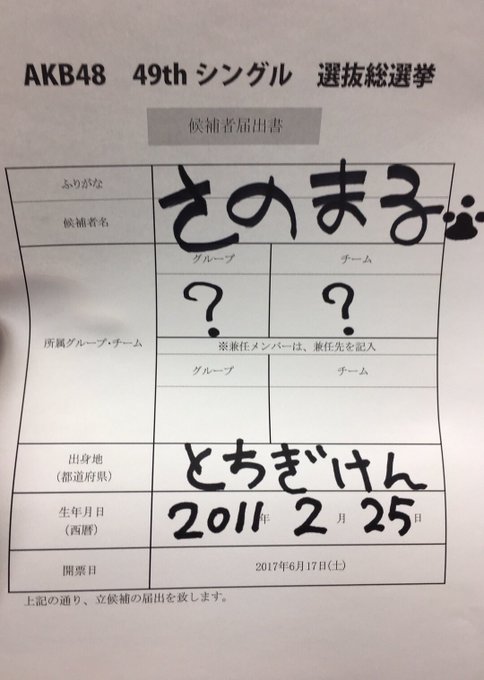 AKB48　49th シングル　選抜総選挙
候補者届出書
ふりがな
候補者名
さのまる
所属グループ・チーム
グループ　チーム
？　？
※兼任メンバーは、兼任先を記入
グループ　チーム
出身地
(都道府県)
とちぎけん
生年月日
(西暦)
2011年 2月 25日
開票日
2017年6月17日(土)
上記の通り、立候補の届出を致します。